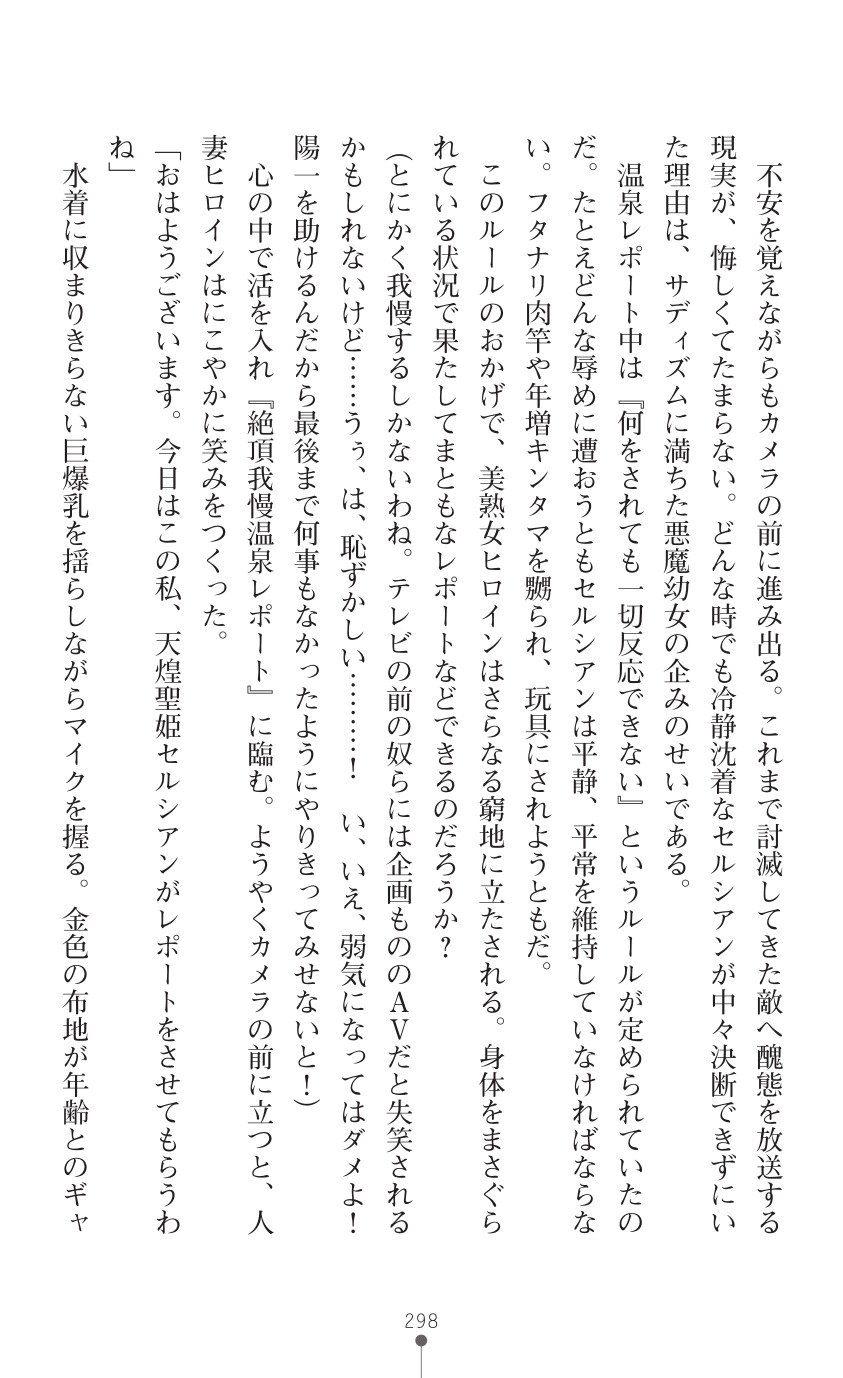 不安を覚えながらもカメラの前に進み出る。これまで討滅してきた敵へ醜態を放送する
現実が、悔しくてたまらない。どんな時でも冷静沈着なセルシアンが中々決断できずにい
た理由は、サディズムに満ちた悪魔幼女の企みのせいである。
温泉レポート中は『何をされても一切反応できない』というルールが定められていたの
だ。たとえどんな辱めに遭おうともセルシアンは平静、平常を維持していなければならな
い。フタナリ肉竿や年増キンタマを嬲られ、玩具にされようともだ。
このルールのおかげで、美熟女ヒロインはさらなる窮地に立たされる。身体をまさぐら
れている状況で果たしてまともなレポートなどできるのだろうか？
（とにかく我慢するしかないわね。テレビの前の奴らには企画もののＡＶだと失笑される
かもしれないけど……うぅ、は、恥ずかしい………！　い、いえ、弱気になってはダメよ！
陽一を助けるんだから最後まで何事もなかったようにやりきってみせないと！）
心の中で活を入れ『絶頂我慢温泉レポート』に臨む。ようやくカメラの前に立つと、人
妻ヒロインはにこやかに笑みをつくった。
「おはようございます。今日はこの私、天煌聖姫セルシアンがレポートをさせてもらうわ
ね」
水着に収まりきらない巨爆乳を揺らしながらマイクを握る。金色の布地が年齢とのギャ
298